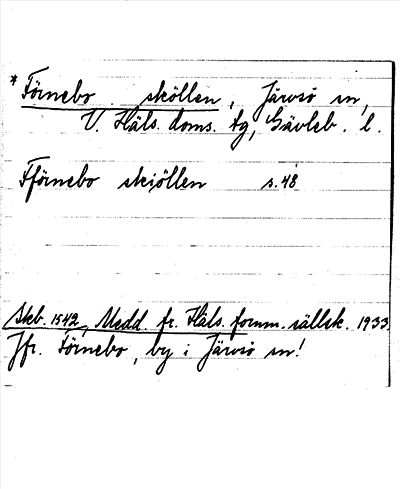 *Förnebo skiöllen, Järvsö sn,
V. Häls. doms. tg, Gävleb. l.
Fförnebo skiöllen s. 48
Skb. 1542, Medd. fr. Häls. fornm. sällsk. 1933
Jfr. Förnebo, by i Järvsö sn!